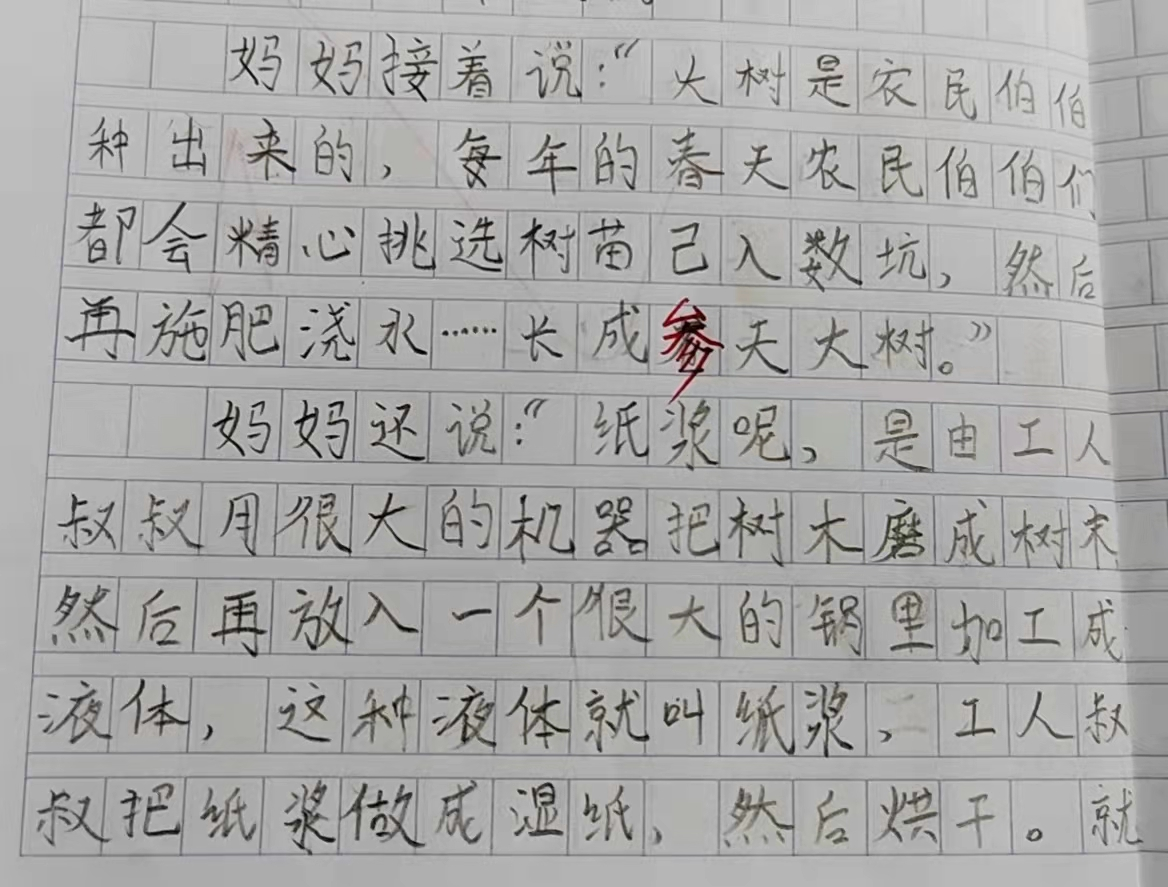 妈妈接着说:“大树是农民伯伯
种出来的,每年的春天农民伯伯们
都会精心挑选树苗己入数坑,然后
再施肥浇水……长成参天大树。”
妈妈还说:“纸浆呢,是由工人
叔叔用很大的机器把树木磨成树末
然后再放入一个很大的锅里加工成
液体,这种液体就叫纸浆,工人叔
叔把纸浆做成湿纸,然后烘干。就